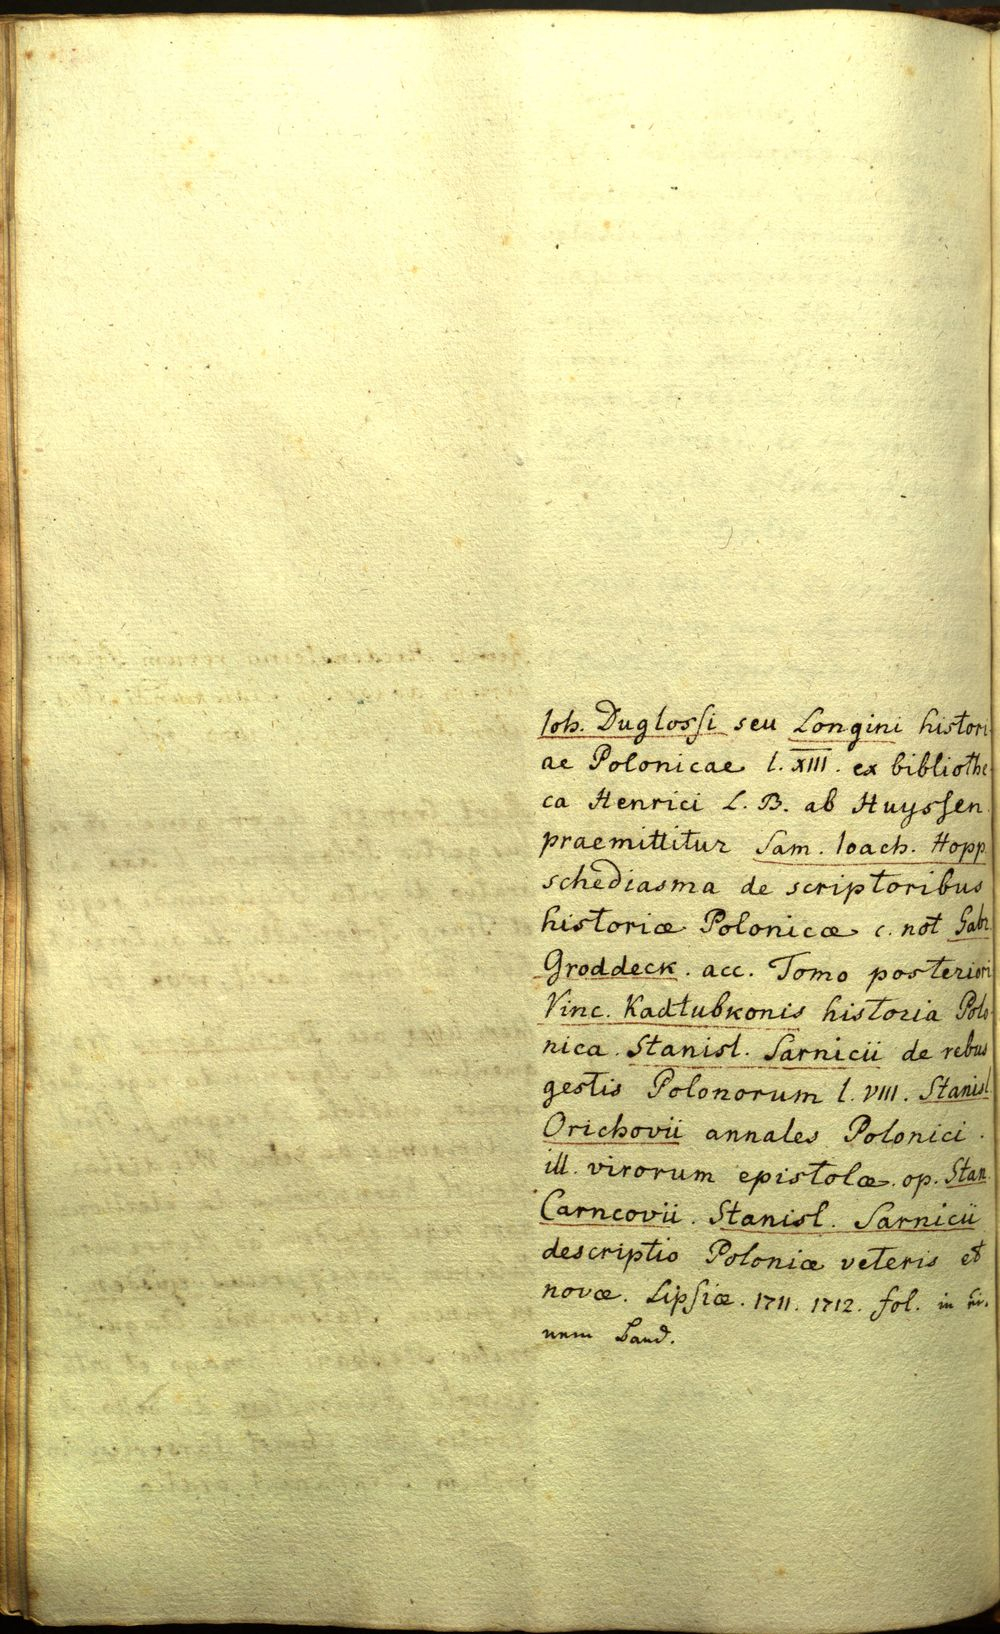 Ioh. Duglossi seu Longini histori-
ae Polonicae l. XIII. ex bibliothe-
ca Henrici L. B. ab Huyssen.
praemittitur Sam. Ioach. Hopp.
schediasma de scriptoribus
historiæ Polonicæ c. not Gabr.
Groddeck. acc. Tomo posteriori
Vinc. Kadłubkonis historia Polo-
nica. Stanisl. Sarnicii de rebus
gestis Polonorum l. VIII. Stanisl.
Orichovii annales Polonici.
ill. virorum epistolæ. op. Stan.
Carncovii. Stanisl. Sarnicii
descriptio Poloniæ veteris et
novæ. Lipsiæ. 1711. 1712. fol. in
Band.